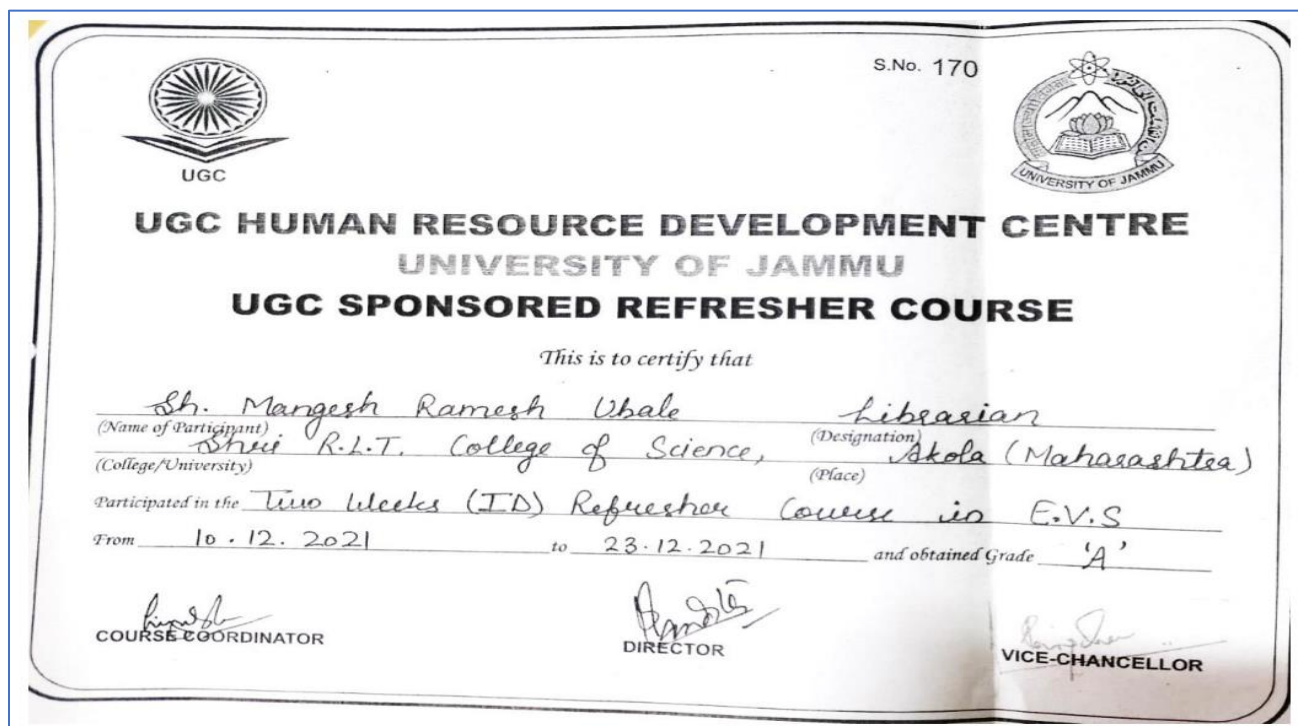 S.No. 170
UGC
UNIVERSITY OF JAMMU
UGC HUMAN RESOURCE DEVELOPMENT CENTRE
UNIVERSITY OF JAMMU
UGC SPONSORED REFRESHER COURSE
This is to certify that
Sh. Mangesh Ramesh Ubale Librarian
(Name of Participant) (Designation)
Shri R.L.T. College of Science, Akola (Maharashtra)
(College/University) (Place)
Participated in the Two Weeks (ID) Refresher Course in E.V.S
From 10.12.2021 to 23.12.2021 and obtained Grade 'A'
COURSE COORDINATOR
DIRECTOR
VICE-CHANCELLOR